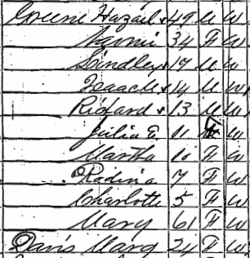 Greene Hazail 49 M W
Naomi 34 F W
Lindley 17 M W
Isaac 14 M W
Richard 13 M W
Julia E. 11 F W
Martha 10 F W
Radina 7 F W
Charlotte 5 F W
Mary 61 F W
Davis Marg 24 F W